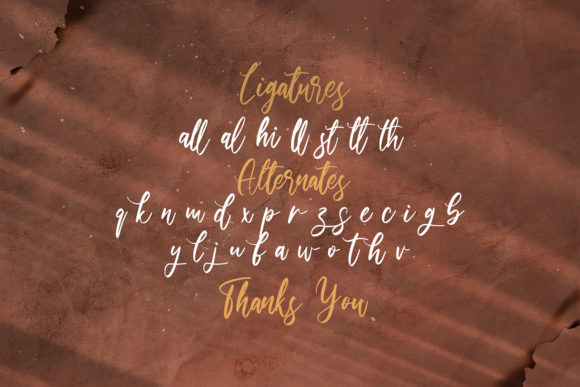 Ligatures
all al hi ll st tt th
Alternates
q k n m d x p r z s e c i g b
y l j u f a w o t h v
Thanks You